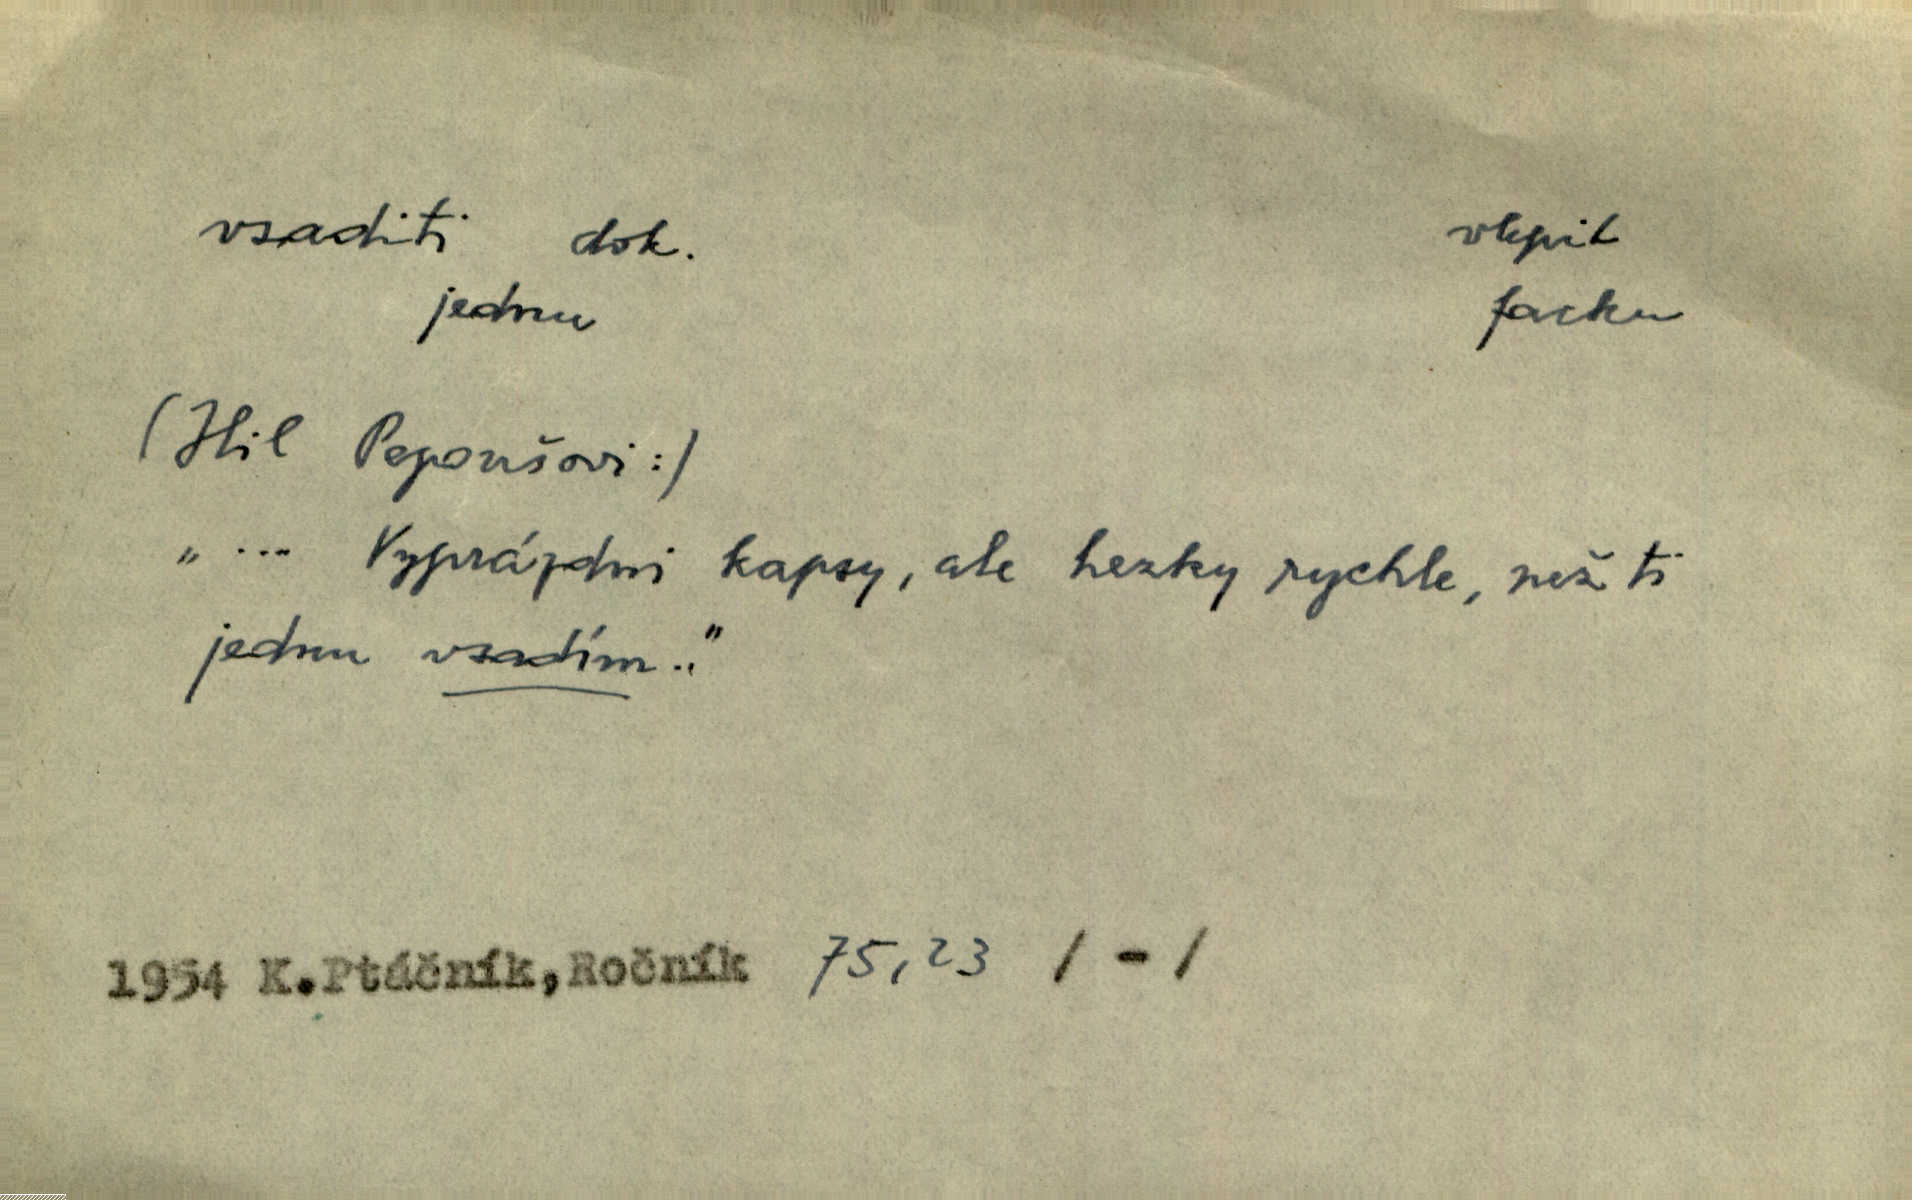 vsaditi dok. vlepit
jednu facku
(Hil Pepoušovi:)
„ ... Vyprázdni kapsy, ale hezky rychle, než ti
jednu vsadím.."
1954 K.Ptáčník,Ročník 75,23 / - /